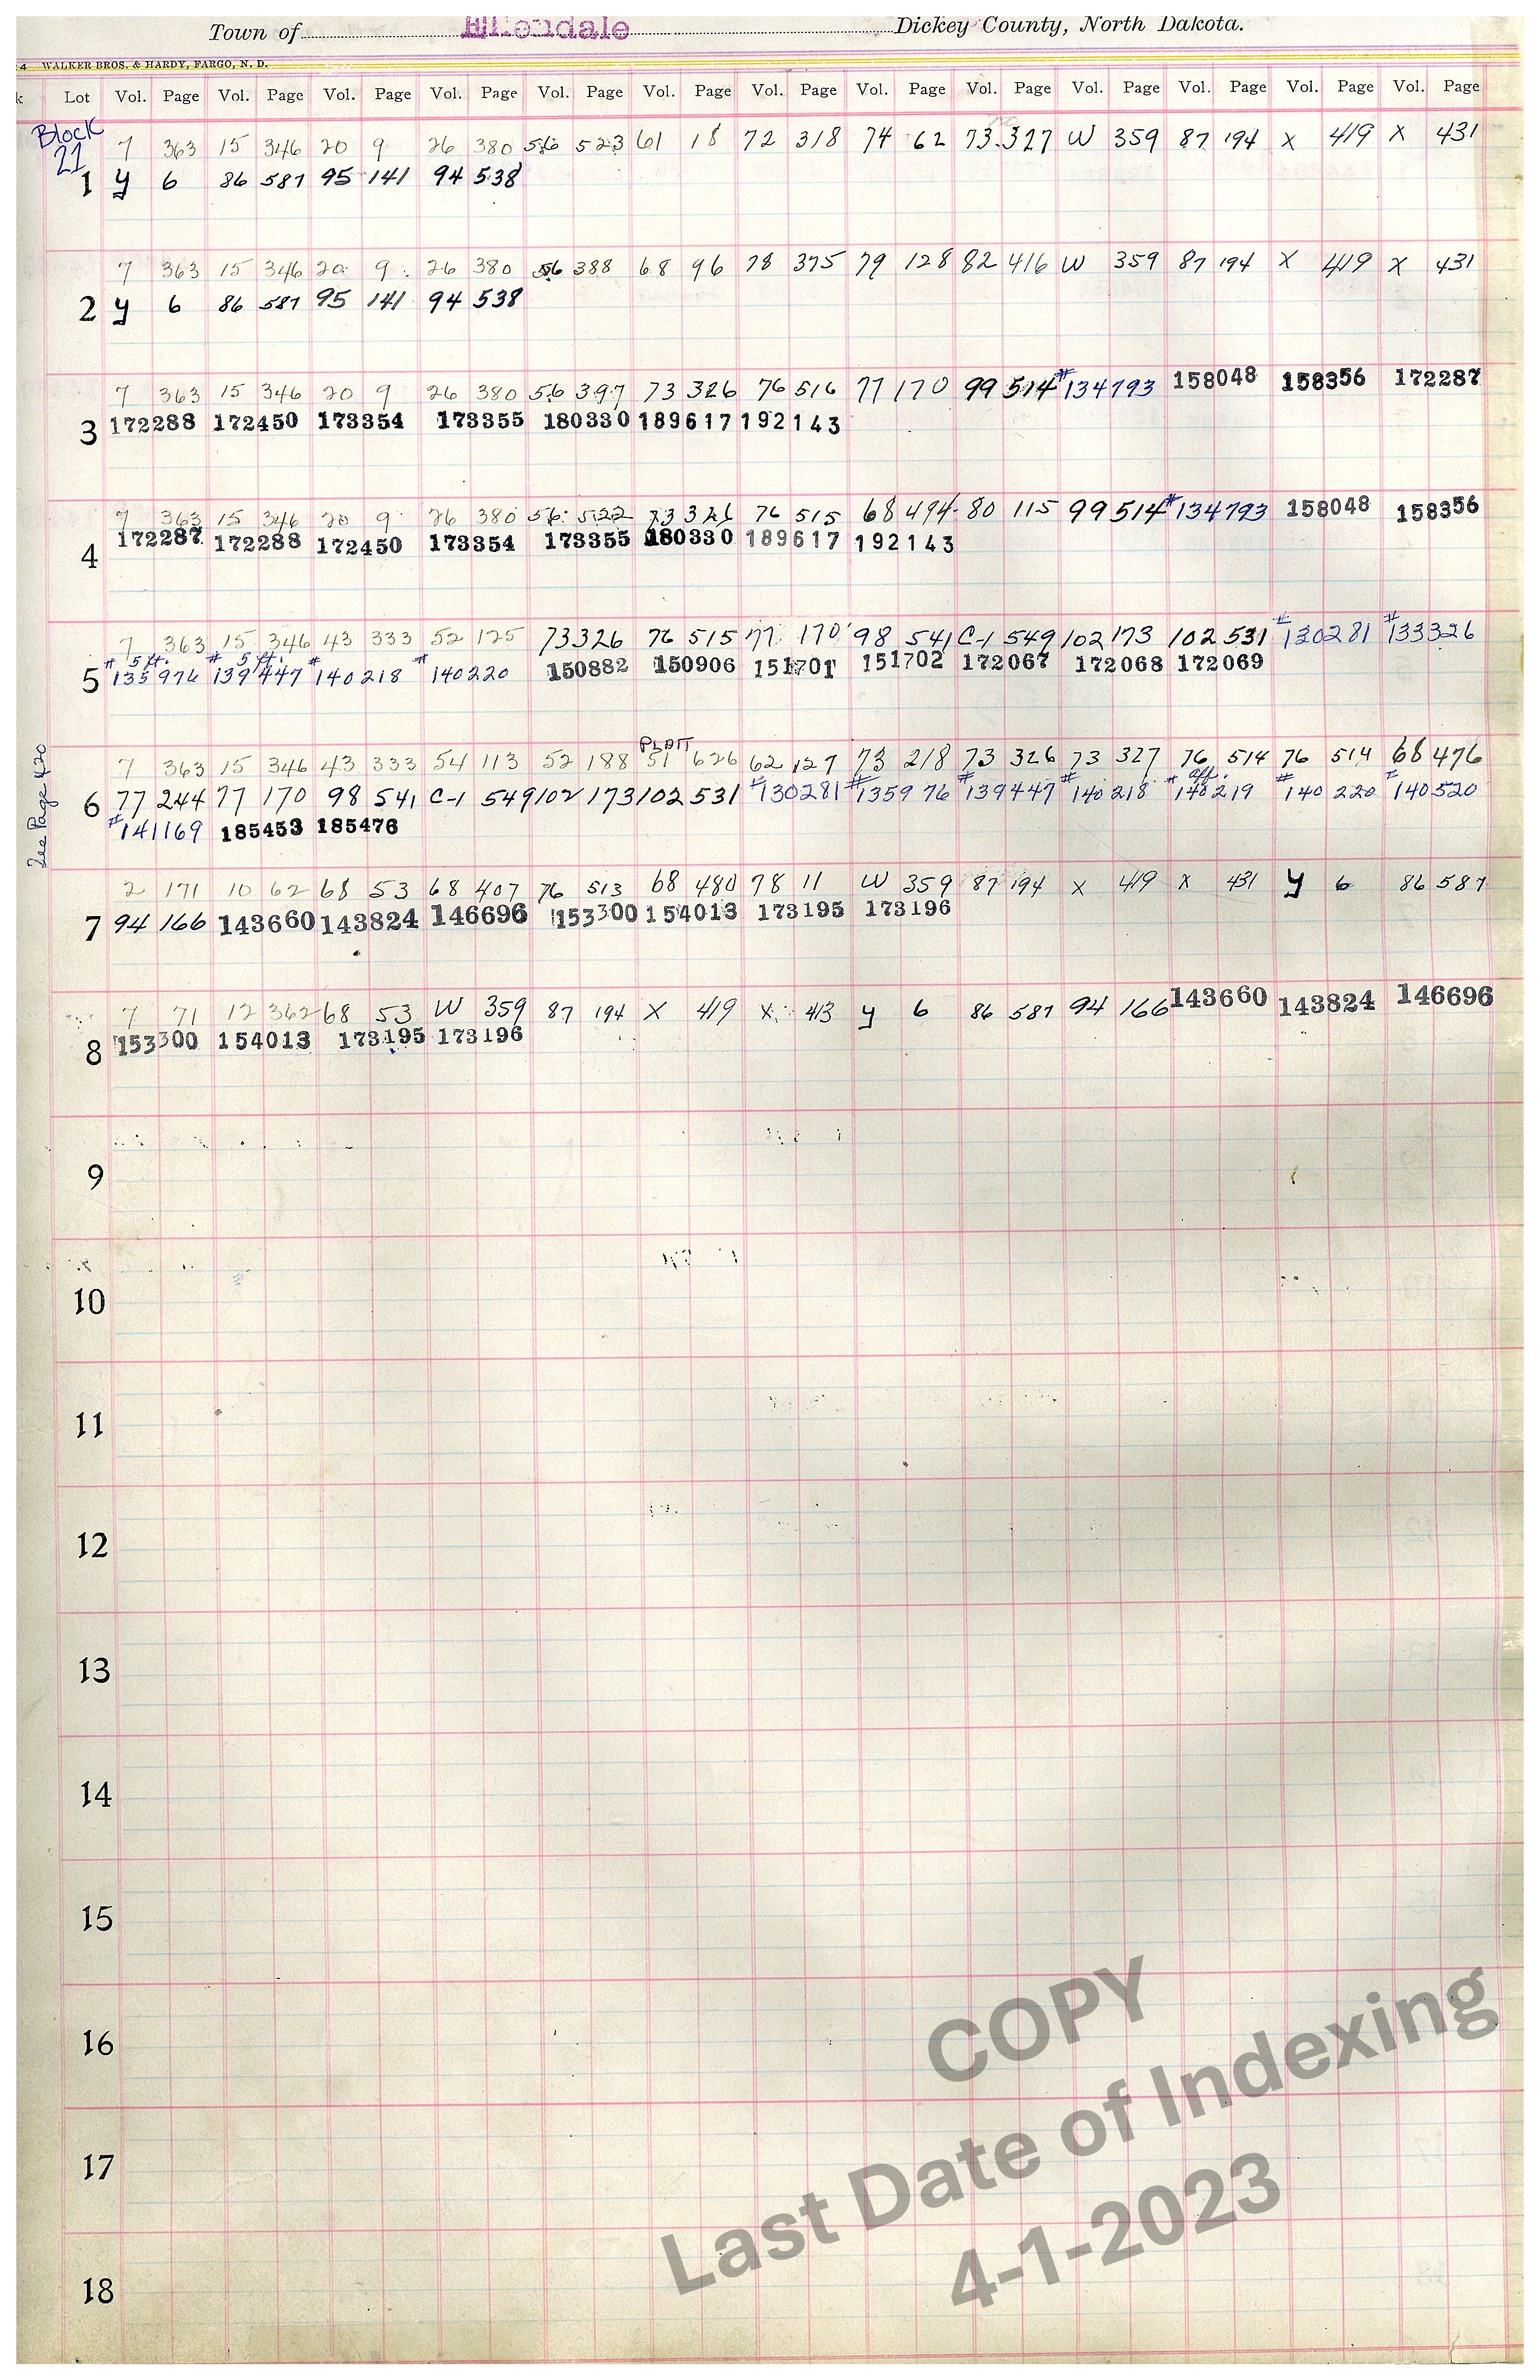 Town of Ellendale Dickey County, North Dakota.
4 WALKER BROS. & HARDY, FARGO, N. D.
k Lot Vol. Page Vol. Page Vol. Page Vol. Page Vol. Page Vol. Page Vol. Page Vol. Page Vol. Page Vol. Page Vol. Page Vol. Page Vol. Page
Block
21
7 363 15 346 20 9 26 380 56 523 61 18 72 318 74 62 73 327 W 359 87 194 X 419 X 431
1 y 6 86 587 95 141 94 538
7 363 15 346 20 9 26 380 56 388 68 96 78 375 79 128 82 416 W 359 87 194 X 419 X 431
2 y 6 86 587 95 141 94 538
7 363 15 346 20 9 26 380 56 397 73 326 76 516 77 170 99 514 #134793 158048 158356 172287
3 172288 172450 173354 173355 180330 189617 192143
7 363 15 346 20 9 26 380 56 522 73 326 76 515 68 494 80 115 99 514 #134793 158048 158356
4 172287 172288 172450 173354 173355 180330 189617 192143
7 363 15 346 43 333 52 125 73 326 76 515 77 170 98 541 C-1 549 102 173 102 531 #130281 #133326
# 5 ft. # 5 ft. # #
5 135976 139447 140218 140220 150882 150906 151701 151702 172067 172068 172069
PLATT
7 363 15 346 43 333 54 113 52 188 51 626 62 127 73 218 73 326 73 327 76 514 76 514 68 476
aff.
6 77 244 77 170 98 541 C-1 549 102 173 102 531 #130281 #135976 #139447 #140218 #140219 #140220 #140520
#141169 185453 185476
See Page 420
2 171 10 62 68 53 68 407 76 513 68 480 78 11 W 359 87 194 X 419 X 431 y 6 86 587
7 94 166 143660 143824 146696 153300 154013 173195 173196
7 71 12 362 68 53 W 359 87 194 X 419 X 413 y 6 86 587 94 166 143660 143824 146696
8 153300 154013 173195 173196
9
10
11
12
13
14
15
16
17
18
COPY
Last Date of Indexing
4-1-2023